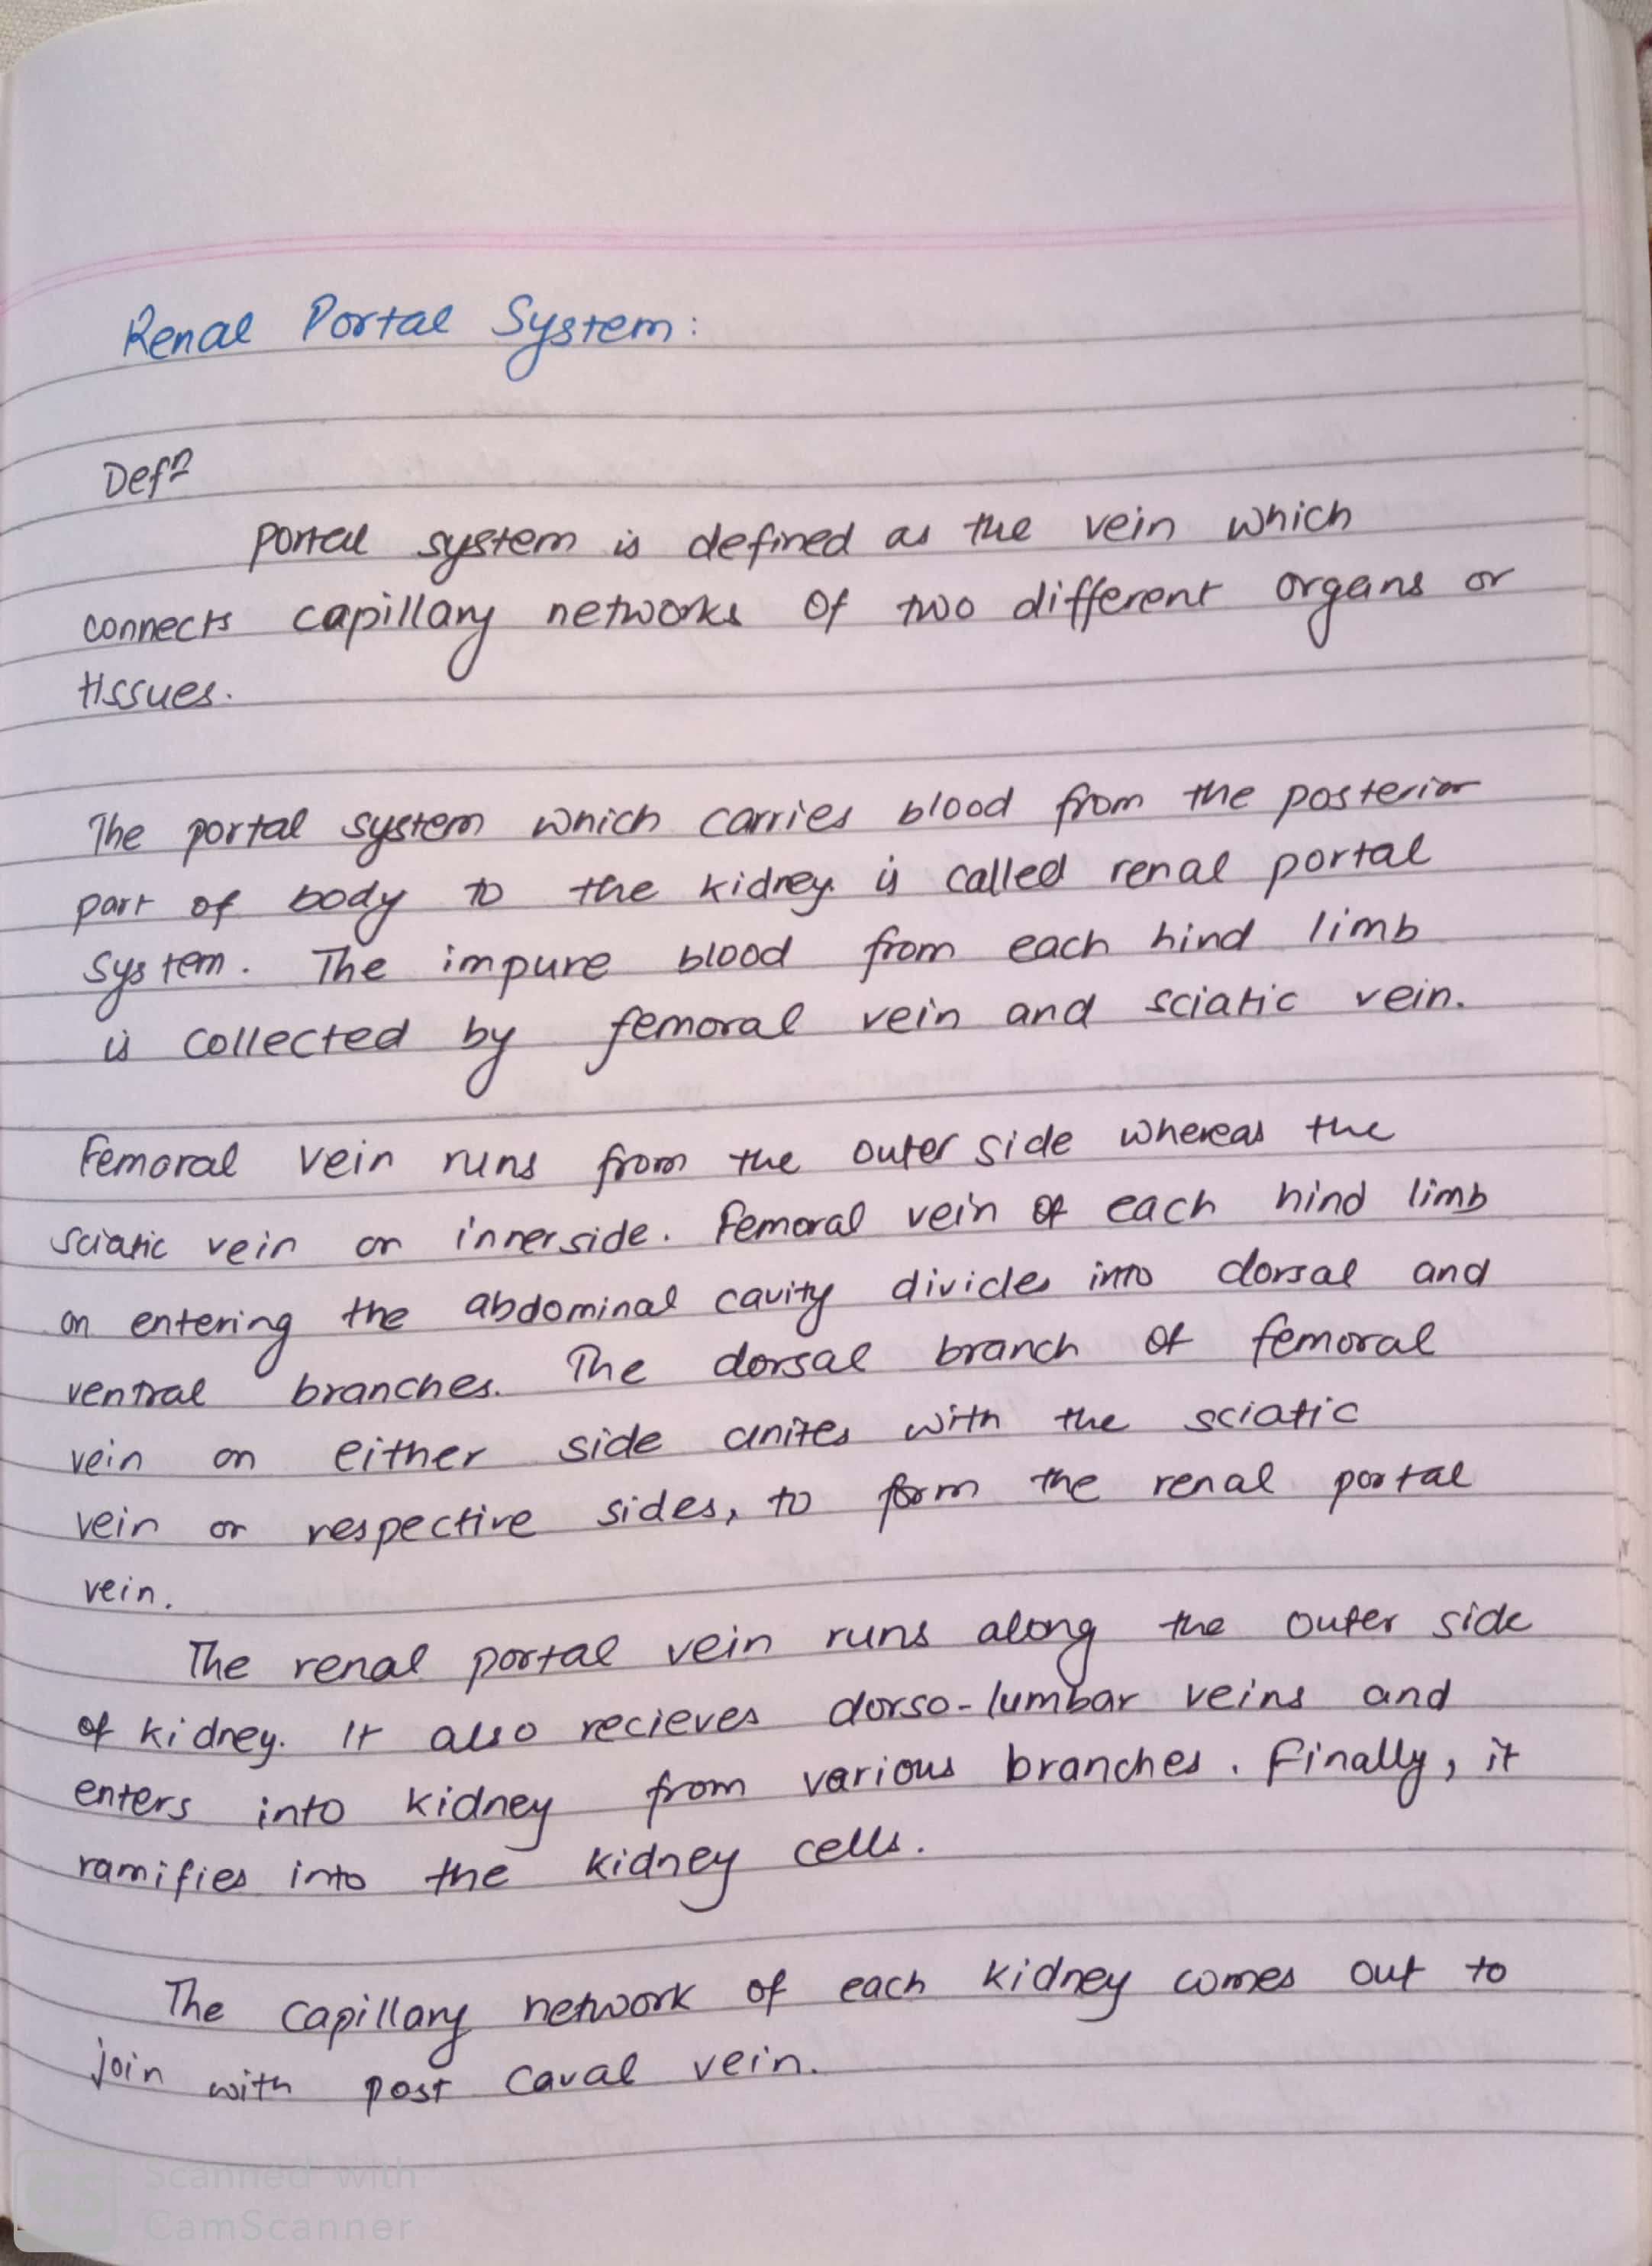 Renal Portal System:
Defn
Portal system is defined as the vein which
connects capillary networks of two different organs or
tissues.
The portal system which carries blood from the posterior
part of body to the kidney is called renal portal
system. The impure blood from each hind limb
is collected by femoral vein and sciatic vein.
Femoral vein runs from the outer side whereas the
sciatic vein on innerside. Femoral vein of each hind limb
on entering the abdominal cavity divides into dorsal and
ventral branches. The dorsal branch of femoral
vein on either side unites with the sciatic
vein or respective sides, to form the renal portal
vein.
The renal portal vein runs along the outer side
of kidney. It also recieves dorso-lumbar veins and
enters into kidney from various branches. Finally, it
ramifies into the kidney cells.
The capillary network of each kidney comes out to
join with post caval vein.
CS Scanned with
CamScanner